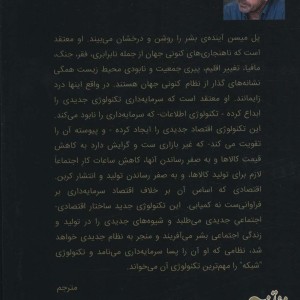 پل میسن آینده‌ی بشر را روشن و درخشان می‌بیند. او معتقد
است که ناهنجاری‌های کنونی جهان از جمله نابرابری، فقر، جنگ،
مافیا، تغییر اقلیم، پیری جمعیت و نابودی محیط زیست همگی
نشانه‌های گذار از نظام کنونی جهان هستند. در واقع اینها درد
زایمانند. او معتقد است که سرمایه‌داری تکنولوژی جدیدی را
ابداع کرده - تکنولوژی اطلاعات- که سرمایه‌داری را نابود می‌کند.
این تکنولوژی اقتصاد جدیدی را ایجاد کرده - و پیوسته آن را
تقویت می کند- که غیر بازاری ست و گرایش دارد به کاهش
قیمت کالاها و به صفر رساندن آنها، کاهش ساعات کار اجتماعاً
لازم برای تولید کالاها، و به صفر رساندن تولید و انتشار کربن.
اقتصادی که اساس آن بر خلاف اقتصاد سرمایه‌داری بر
فراوانی‌ست نه کمیابی. این تکنولوژی جدید ساختار اقتصادی-
اجتماعی جدیدی می‌طلبد و شیوه‌های جدیدی را در تولید و
زندگی اجتماعی بشر می‌آفریند و منجر به نظام جدیدی خواهد
شد، نظامی که او آن را پسا سرمایه‌داری می‌نامد و تکنولوژی
"شبکه" را مهم‌ترین تکنولوژی آن می‌خواند.
مترجم